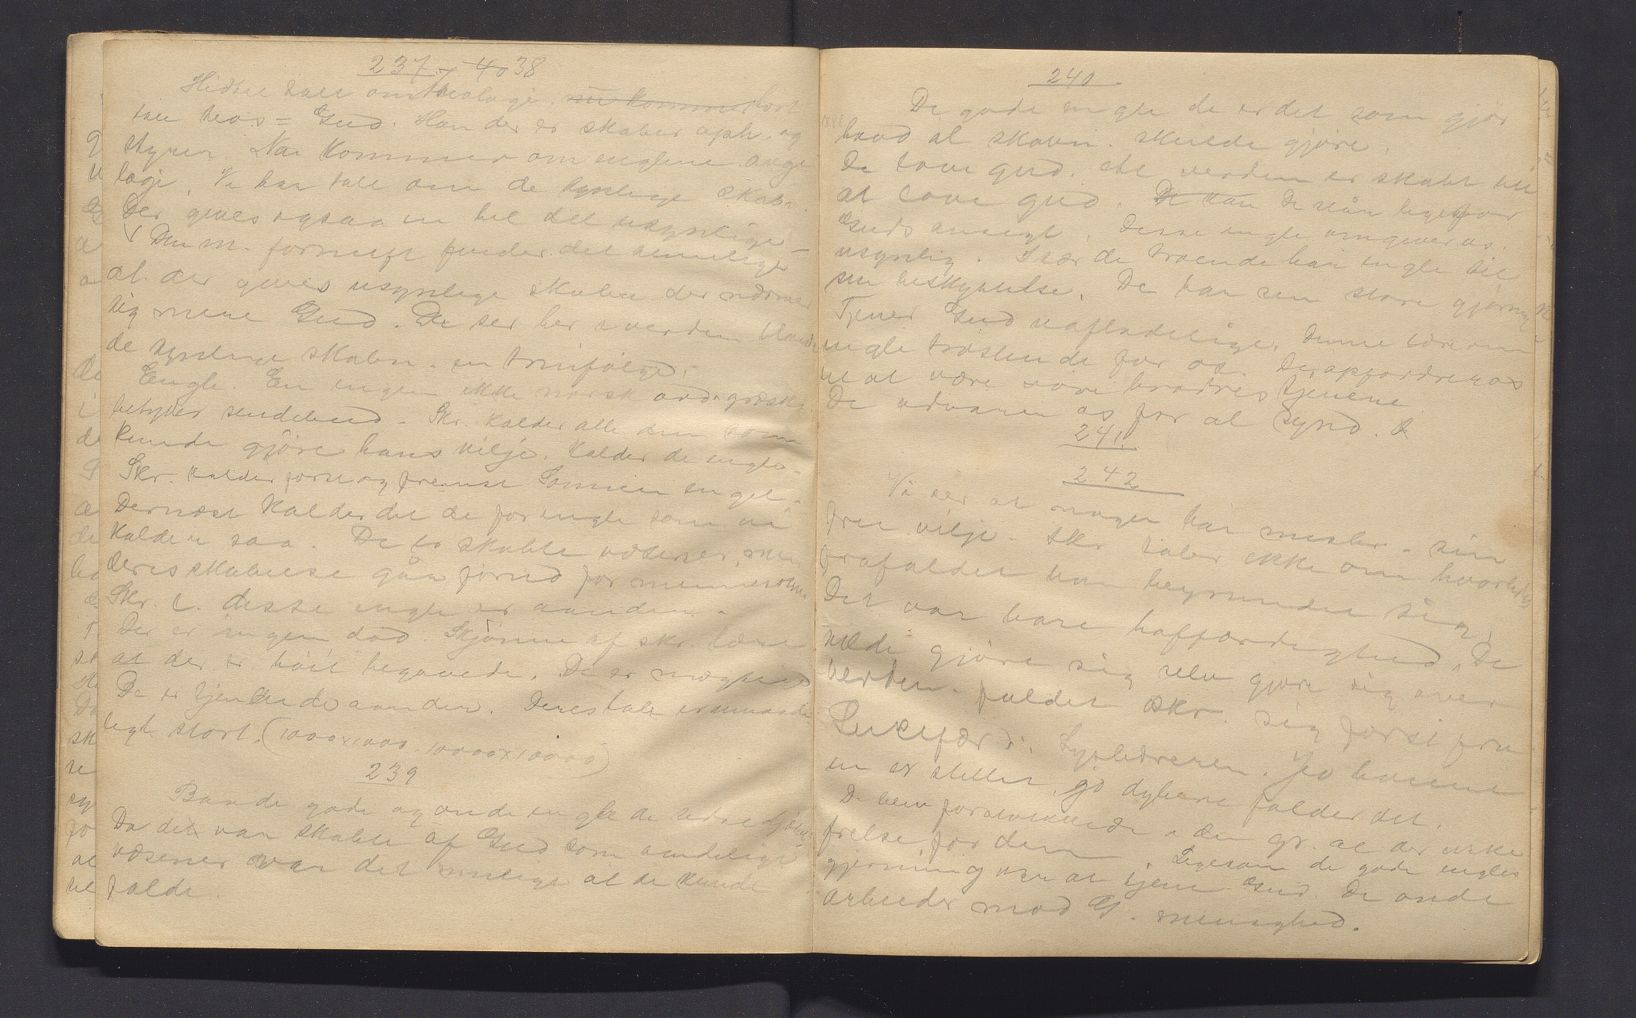 237 - 4038
Hidtil talt om theologi. nu kommer
teos = Gud. Han der er skaber oph. og
styrer. Na kommer om englene ange
logi. Vi har talt om de synlige skab.
Der gives ogsaa en hel del usynlige -
Den m. fornuft finder det rimeligt
at der gives usynlige skabn der nærmer
sig mere Gud. De ser her i verden blandt
de synlige skabn. en trinfølge.
Engle. En engel ikke norsk ord. græsk
betyder sendebud. Skr. kalder alle dem som
kunde gjöre hans vilje. Kalder de engle.
Skr. kalder först og fremst Sönnen engel.
Dernæst kalder det de for engle som vi
kalder saa. De er skabte væsener, men
deres skabelse gåa forud for menneskene.
Skr. l. disse engle er aander.
Der er ingen död. Skjönne af skr. lære
at der er höit begavede. De er mægtige
De er tjenende aander. Deres tale er umaade
ligt stort. (1000x1000. 10000x10000)
239
Baade gode og onde engle
Da det var skabte af Gud som aandelige
væsener var det mulige at de kunde
falde.
240
De gode engle de er det som gjör
hvad al skabn. skulde gjöre.
De love gud. At verden er skabt til
at love gud. De kan De står ligefor
Guds ansigt. Disse engle omgiver os.
usynlig. Især de troende har engle til
sin beskyttelse. De har sin store gjerning
Tjener Gud uafladelige. Denne lære om
engle tröstende for os. De opfordrer os
til at være vore brödres tjenere
De advarer os for al synd.
241
242
Vi ser at nogen har misbr. sin
frie vilje. Skr taler ikke om hvorledes
frafaldet har begyndet sig.
Det var bare hoffærdighed. De
vilde gjöre sig selv gjöre sig over
verden. faldet skr. sig först fra
Lucefær ɔ: Lysbæreren. Jo höiere
en er stillet, jo dybere falder det.
De blev forstokkede i den gr. at der ikke
frelse for dem. Ligesom de gode engles
gjerning var at tjene Gud. De onde
arbeider mod G. menighed.